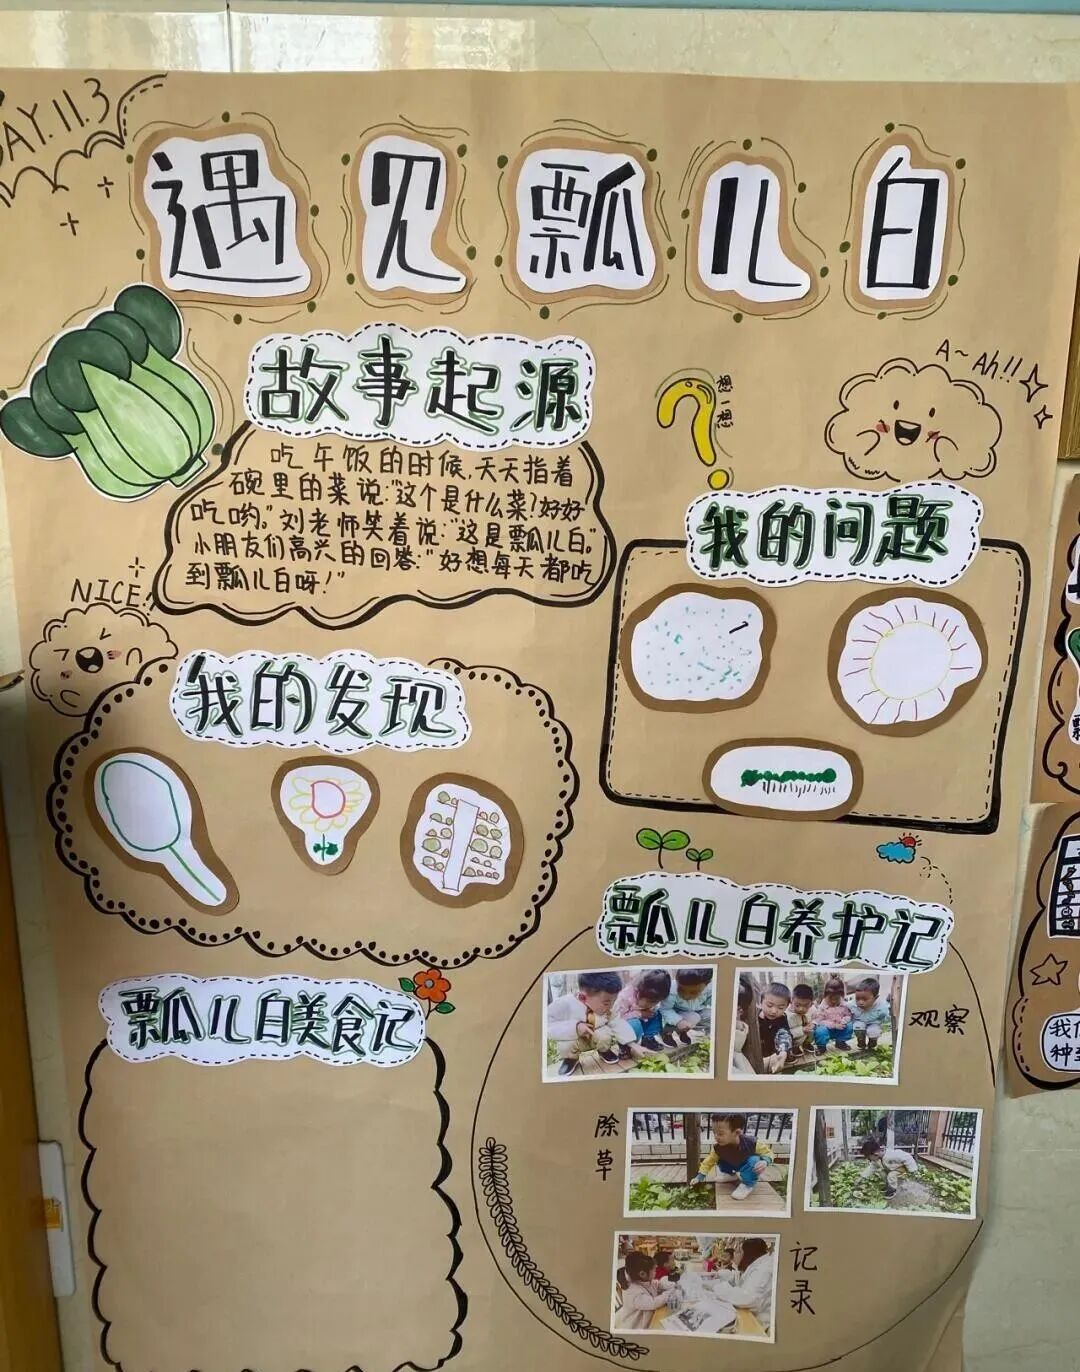 DAY.11.3
遇见瓢儿白
故事起源
吃午饭的时候,天天指着
碗里的菜说:“这个是什么菜?好好
吃哟。”刘老师笑着说:“这是瓢瓜儿白。”
小朋友们高兴的回答:“好想每天都吃
到瓢儿白呀!”
想一想
A~Ah!!
我的问题
NICE!
我的发现
瓢儿白养护记
观察
除草
记录
瓢儿白美食记
我们
种